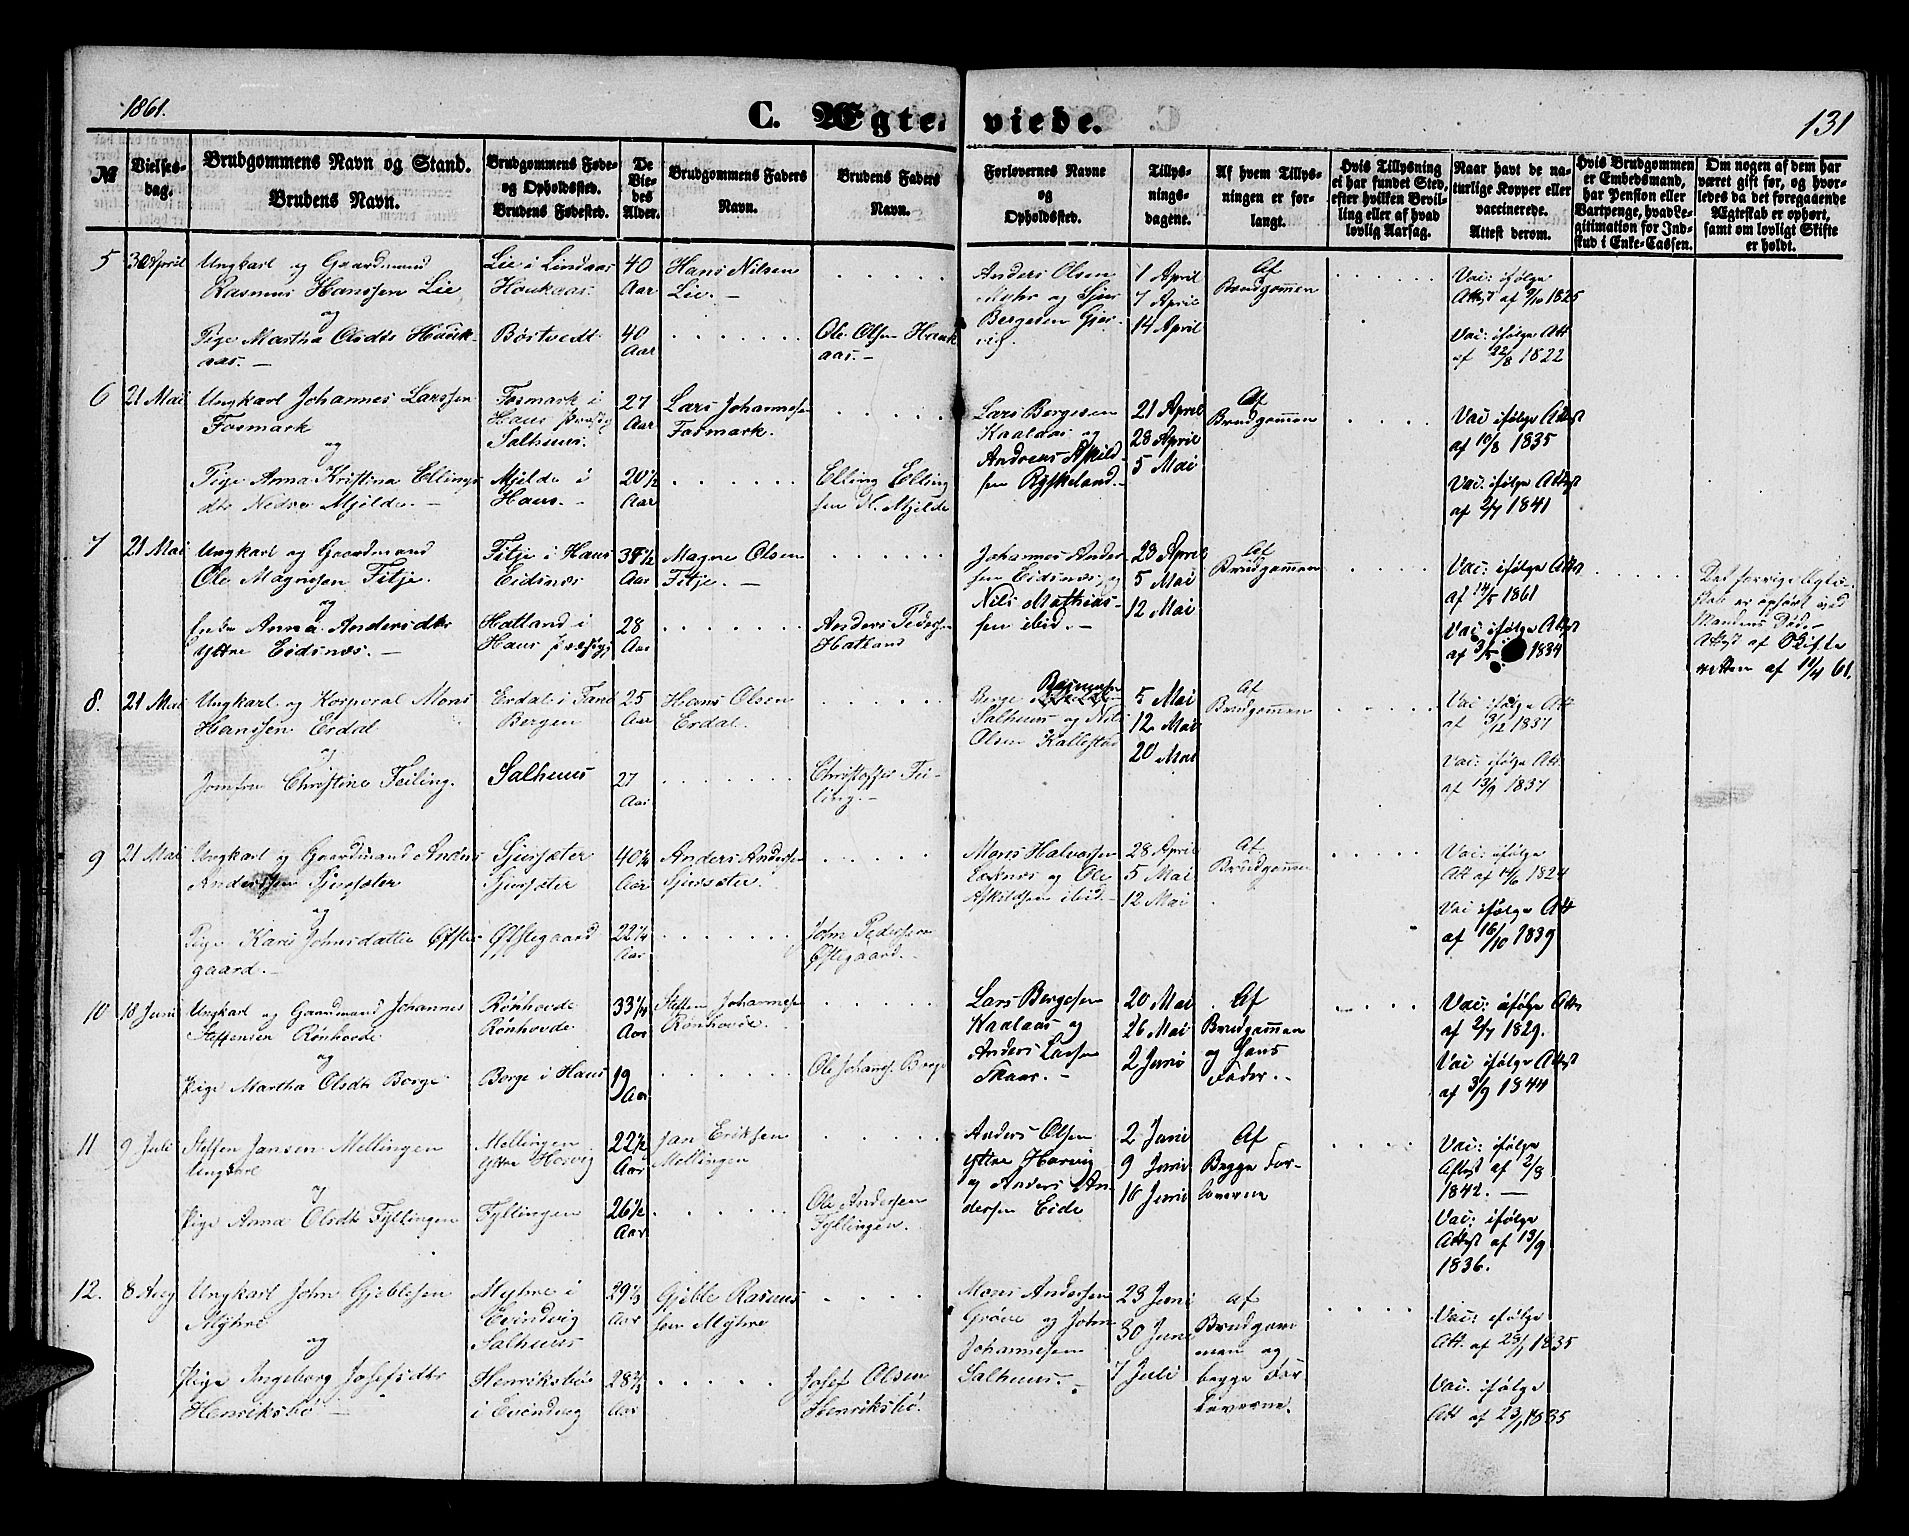 1861.
C. Ægteviede.
131
№
Vielses-
dag.
Brudgommens Navn og Stand.
Brudens Navn.
Brudgommens Føde-
og Opholdssted.
Brudens Fødested.
De
Vie-
des
Alder.
Brudgommens Faders
Navn.
Brudens Faders
Navn.
Forlovernes Navne
og
Opholdssted.
Tillys-
nings-
dagene.
Af hvem Tillys-
ningen er for-
langt.
Hvis Tillysning
ei har fundet Sted,
efter hvilken Bevil-
ling eller af hvad
lovlig Aarsag.
Naar havt de na-
turlige Kopper eller
vaccinerede.
Attest derom.
Hvis Brudgommen
er Embedsmand,
har Pension eller
Vartpenge, hvad Le-
gitimation for Ind-
skud i Enke-Cassen.
Om nogen af dem har
været gift før, og hvor-
ledes da det foregaaende
Ægteskab er ophørt,
samt om lovligt Skifte
er holdt.
5 30 April Ungkarl og Gaardmand
Rasmus Hanssen Lie
og
Pige Martha Olsdtr Hauk-
aas. -
Lie i Lindaas
Haukaas.
Børtvedt
40
Aar
40
Aar
Hans Nilsen
Lie. -
Ole Olsen Hauk
aas. -
Anders Olsen
Myhr og Sjur
Bergesen Gjer-
vig.
1 April
7 April
14 April
Af
Brudgommen
Vac: ifølge
Attest af 9/10 1825
Vac: ifølge Att
af 22/8 1822
6 21 Mai Ungkarl Johannes Larssen
Fosmark
og
Pige Anna Kristina Ellings
dtr Nedre Mjelde. -
Fosmark i
Haus
Salhuus.
Mjelde i
Haus. -
27
Aar
20 1/2
Aar
Lars Johannesen
Fosmark.
Elling Elling
sen N. Mjelde
Lars Bergesen
Kaalaas og
Andreas Askild-
sen Ryskeland. -
21 April
28 April
5 Mai
Af
Brudgommen
Vac: ifølge Attest
af 10/8 1835
Vac: ifølge Attest
af 2/7 1841
7 21 Mai Ungkarl og Gaardmand
Ole Magnesen Fitje.
og
Enke Anna Andersdtr
Yttre Eidsnes. -
Fitje i Haus
Eidsnes
Hatland i
Haus
Aar
28
Aar
Magne Olsen
Fitje. -
Anders Peders-
Hatland
Johannes Ander
sen Eidsnes, og
Nils Mathias-
sen ibid. -
28 April
5 Mai
12 Mai
Af
Brudgommen
Vac: ifølge Attest
af 14/5 1861
Vac: ifølge Attest
af 3/5 1834
Det forrige Ægte-
skab er ophørt ved
Mandens Død. -
Attest af Skifte
retten af 19/4 61.
8. 21 Mai Ungkarl og Korporal Mons
Hanssen Erdal
og
Jomfru Christine Teiling.
Erdal i Fane
Bergen
Salhuus
25
Aar
27
Aar
Hans Olsen
Erdal.
Christoffer Tei-
ling. -
Berge Rasmussen
Salhuus og Nils
Olsen Kallestad
5 Mai
12 Mai
20 Mai
Af
Brudgommen
Vac: ifølge Att
af 3/12 1837
Vac: ifølge Att.
af 13/9 1837
9 21 Mai Ungkarl og Gaardmand Anders
Anderssen Sjursæter
og
Pige Kari Johnsdatter Øfste-
gaard. -
Sjursæter
Sjursæter
Øfstegaard
40 1/4
Aar
22 1/4
Aar
Anders Andersen
Sjursæter.
John Pedersen
Øfstegaard. -
Mons Halvorsen
og Ole
Askildsen ibid. -
28 April
5 Mai
12 Mai
Af
Brudgommen
Vac: ifølge
Att af 14/6 1824
Vac ifølge Att
af 16/10 1839
10 18 Juni Ungkarl og Gaardmand Johannes
Steffensen Rønhovde
og
Pige Martha Olsdtr Borge
Rønhovde
Rønhovde
Borge i Haus
33 1/4
Aar
19
Aar
Steffen Johannesen
Rønhovde.
Ole Johans. Borge
Lars Bergesen
Kaalaas og
Anders Larsen
Skaar. -
20 Mai
26 Mai
2 Juni
Af
Brudgommen
og hans
Fader. -
Vac: ifølge Att
af 2/7 1829.
Vac ifølge Attest
af 3/9 1844
11 9 Juli Steffen Jansen Mellingen
Ungkarl
og
Pige Anna Olsdtr Fyllingen
Mellingen
Yttre Horvig
Fyllingen
22 1/2
Aar
26 1/2
Aar
Jan Eriksen
Mellingen
Ole Andersen
Fyllingen.
Anders Olsen
Yttre Horvig
og Anders An-
dersen Eide
2 Juni
9 Juni
16 Juni
Af
Begge For-
loverne
Vac: ifølge
Attest af 2/8
1842. -
Vac: ifølge
Attest af 13/9
1836.
12. 8 Aug Ungkarl John Gjeblesen
Myhre
og
Pige Ingeborg Josefsdtr
Henriksbø -
Myhre i
Evindvig
Salhuus
Henriksbø
i Evindvig
29 1/3
Aar
28 2/3
Aar
Gjeble Rasmus
sen Myhre
Josef Olsen
Henriksbø.
Mons Andersen
Grøve og John
Johannesen
Salhuus. -
23 Juni
30 Juni
7 Juli
af
Brudgom
men og
begge For
loverne.
Vac: ifølge
Att. af 23/1 1835
Vac. ifølge
Att af 23/1 1835